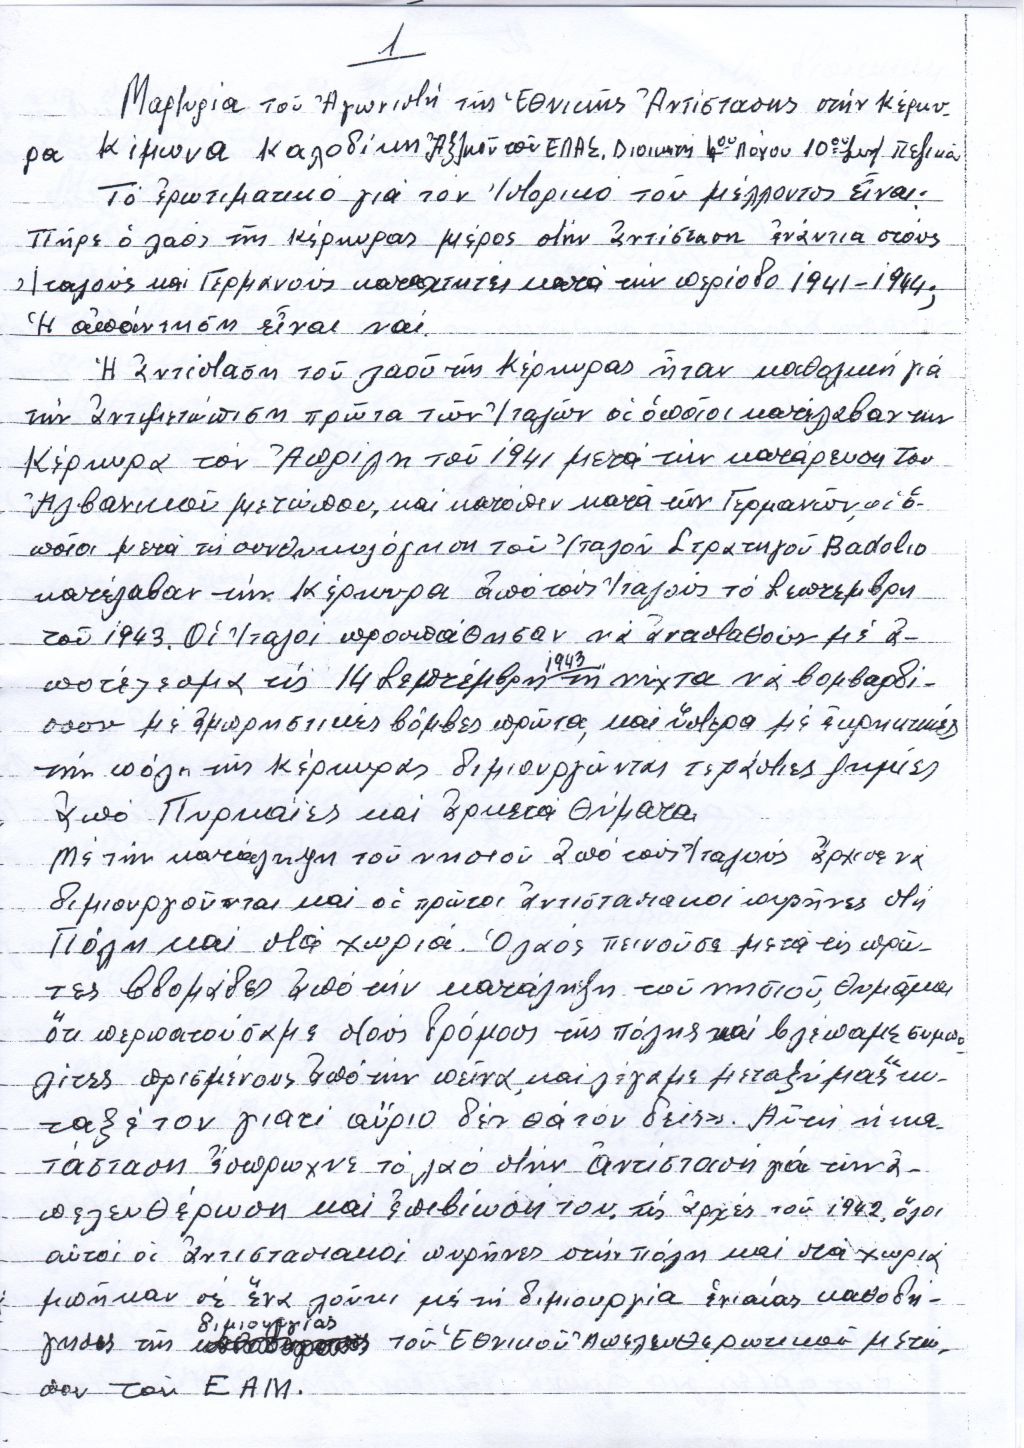 1
Μαρτυρία τοῦ Ἀγωνιστῆ τῆς Ἐθνικῆς Ἀντίστασης στήν Κέρκυ-
ρα Κίμωνα Καλοδίκη Ἀξ/κοῦ τοῦ ΕΛΑΣ. Διοικητή 4ου Λόχου 10ου Συν/ Πεζικοῦ
Τό ἐρωτιματικό γιά τόν Ἱστορικό τοῦ μέλλοντος εἶναι:
Πῆρε ὁ λαός τῆς Κέρκυρας μέρος στήν ἀντίσταση ἐνάντια στούς
Ἰταλούς καί Γερμανούς κατακτητές κατά τήν περίοδο 1941-1944;
Ἡ ἀπάντηση εἶναι ναί.
Ἡ ἀντίσταση τοῦ λαοῦ τῆς Κέρκυρας ἦταν καθολική γιά
τήν ἀντιμετώπιση πρῶτα τῶν Ἰταλῶν οἱ ὁποῖοι κατέλαβαν τήν
Κέρκυρα τόν Ἀπρίλη τοῦ 1941 μετά τήν κατάρευση τοῦ
Ἀλβανικοῦ μετώπου, καί κατόπιν κατά τῶν Γερμανῶν, οἱ ὁ-
ποῖοι μετά τή συνθηκολόγηση τοῦ Ἰταλοῦ Στρατηγοῦ Badolio
κατέλαβαν τήν Κέρκυρα ἀπό τούς Ἰταλούς τό Σεπτέμβρη
τοῦ 1943. Οἱ Ἰταλοί προσπάθησαν νά ἀντισταθοῦν μέ ἀ-
ποτέλεσμα τίς 14 Σεπτέμβρη 1943 τή νύχτα νά βομβαρδί-
σουν μέ ἐμπρηστικές βόμβες πρῶτα, καί ὕστερα μέ ἐκρηκτικές
τήν πόλη τῆς Κέρκυρας διμιουργώντας τεράστιες ζημίες
ἀπό Πυρκαϊές καί ἀρκετά θύματα.
Μέ τήν κατάληψη τοῦ νησιοῦ ἀπό τούς Ἰταλούς ἄρχισε νά
διμιουργοῦνται καί οἱ πρῶτοι ἀντιστασιακοί πυρῆνες στή
Πόλη καί στά χωριά. Ὁ λαός πεινοῦσε μετά τίς πρῶ-
τες βδομάδες ἀπό τήν κατάληξη τοῦ νησιοῦ, θυμᾶμαι
ὅτι περπατούσαμε στούς δρόμους τῆς πόλης καί βλέπαμε συμπο-
λίτες πρισμένους ἀπό τήν πεῖνα, καί λέγαμε μεταξύ μας "κυ-
ταξέ τον γιατί αὔριο δέν θά τόν δεῖς". Αὐτή ἡ κα-
τάσταση ἔσπρωχνε τό λαό στήν Ἀντίσταση γιά τήν ἀ-
πελευθέρωση καί ἐπιβίωσή του. τίς ἀρχές τοῦ 1942, ὅλοι
αὐτοί οἱ ἀντιστασιακοί πυρῆνες στήν πόλη καί στά χωριά
μπῆκαν σέ ἕνα λούκι μέ τή διμιουργία ἑνιαίας καθοδή-
γησης τῆς διμιουργίας τοῦ Ἐθνικοῦ Ἀπελευθερωτικοῦ μετώ-
που τοῦ ΕΑΜ.